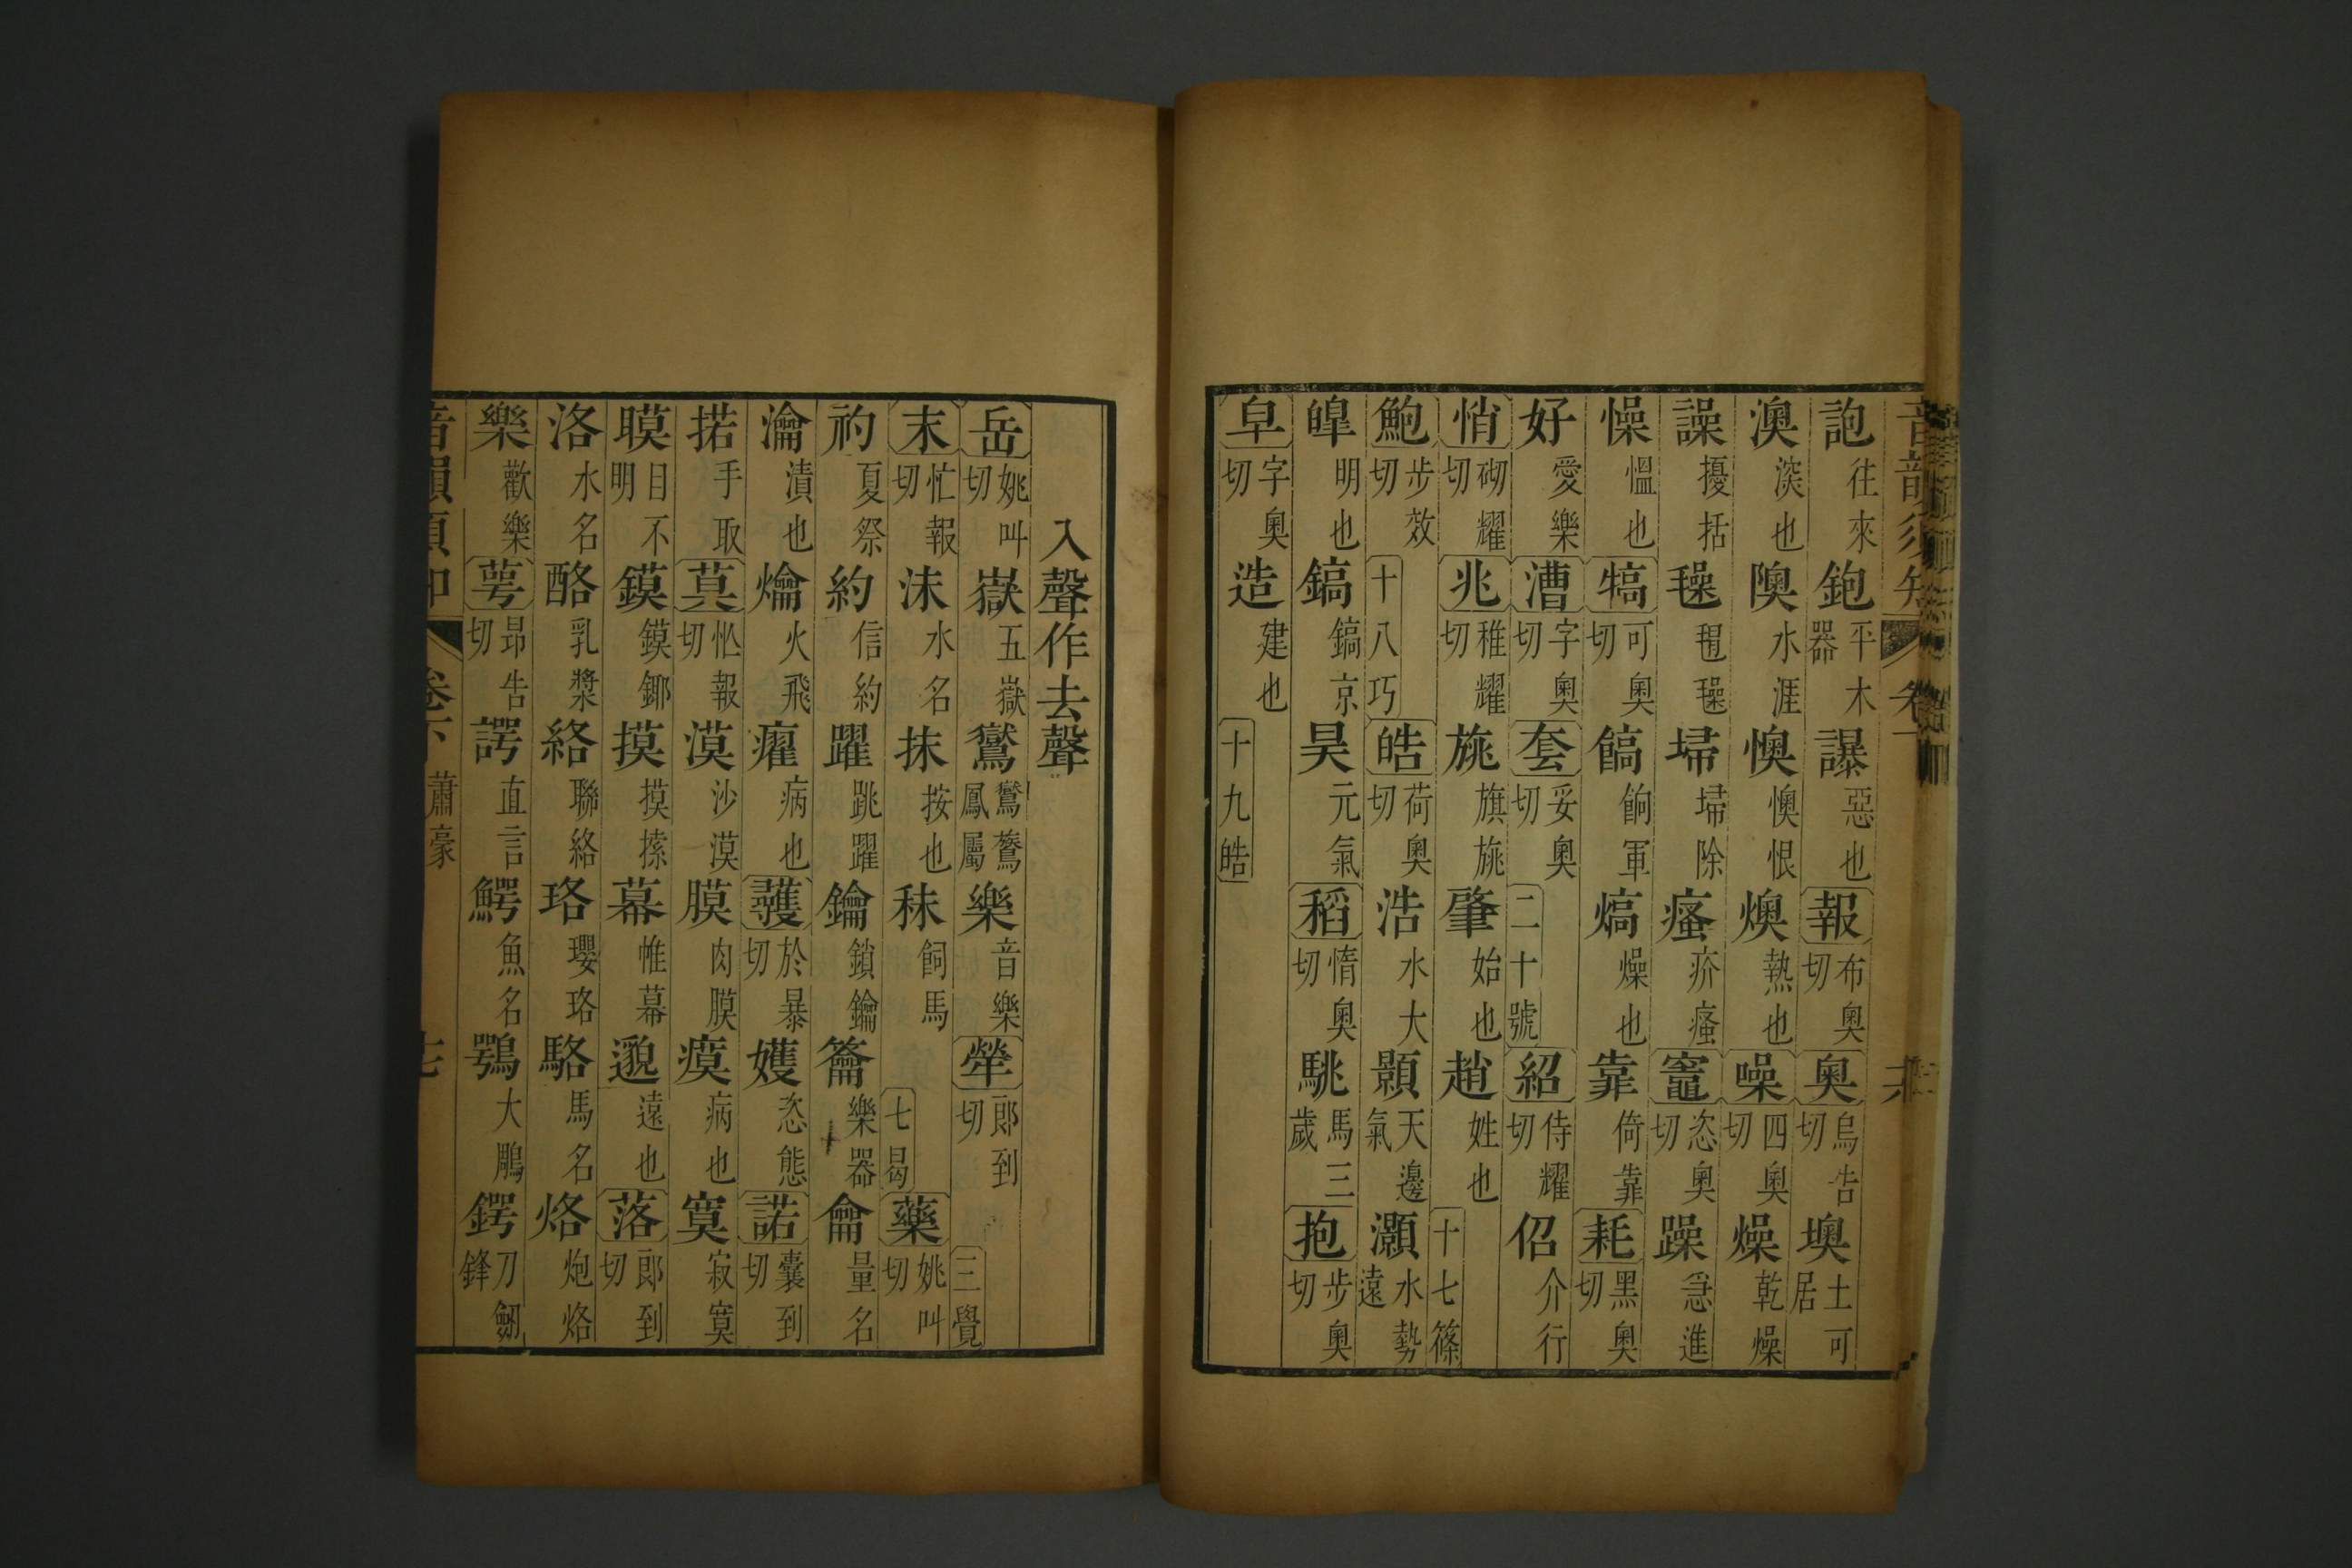 音韻須知 卷下
訑往來鉋平木器謈惡也報布奧切奧烏告切墺土可居
澳深也隩水涯懊懊恨燠熱也噪四奧切燥乾燥
譟擾括氉毷氉埽埽除瘙疥瘙竈恣奧切躁急進
懆慍也犒可奧切𩝝餉軍熇燥也靠倚靠耗黑奧切
好愛樂漕字奧切套妥奧切二十號紹侍耀切佋介行
悄砌耀切兆稚耀切旐旗旐肇始也趙姓也十七篠
鮑步效切十八巧皓荷奧切浩水大顥天邊氣灝水勢遠
皡明也鎬鎬京昊元氣稻惰奧切駣馬三歲抱步奧切
皁字奧切造建也十九皓
入聲作去聲
岳姚叫切嶽五嶽鸑鸑鷟鳳屬樂音樂犖郎到切三覺
末忙報切沬水名抹按也秣飼馬七曷藥姚叫切
礿夏祭約信約躍跳躍鑰鎖鑰籥樂器龠量名
瀹漬也爚火飛癯病也蠖於暴切嬳恣態諾囊到切
掿手取莫忙報切漠沙漠膜肉膜瘼病也寞寂寞
瞙目不明鏌鏌鋣摸摸搎幕帷幕邈遠也落郎到切
洛水名酪乳漿絡聯絡珞瓔珞駱馬名烙炮烙
樂歡樂萼昻告切諤直言鰐魚名鶚大鵰鍔刀劒鋒
音韻須知 卷下 蕭豪 七